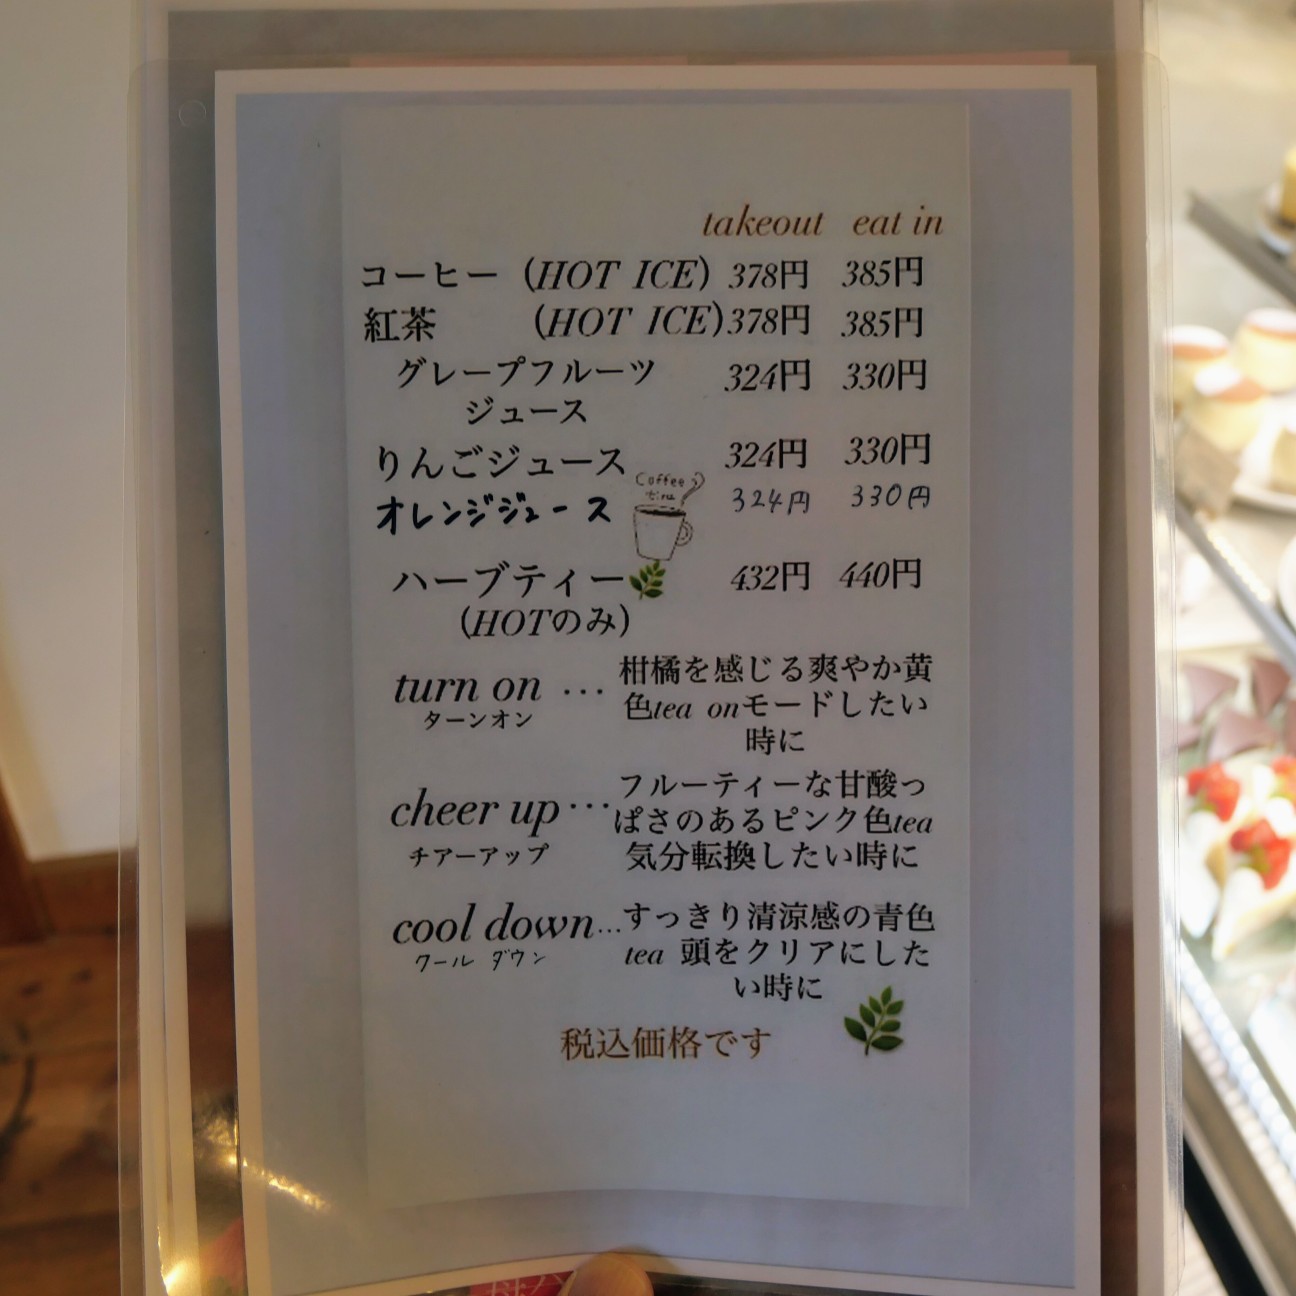 takeout eat in
コーヒー (HOT ICE) 378円 385円
紅茶 (HOT ICE) 378円 385円
グレープフルーツ 324円 330円
ジュース
りんごジュース 324円 330円
Coffee time
オレンジジュース 324円 330円
ハーブティー 432円 440円
(HOTのみ)
turn on … 柑橘を感じる爽やか黄
ターンオン 色tea onモードしたい
時に
cheer up … フルーティーな甘酸っ
ぱさのあるピンク色tea
チアーアップ 気分転換したい時に
cool down … すっきり清涼感の青色
クール ダウン tea 頭をクリアにした
い時に
税込価格です